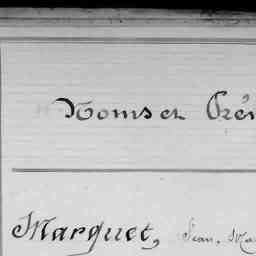 Noms et Prén
Marquet, Jean, Ma